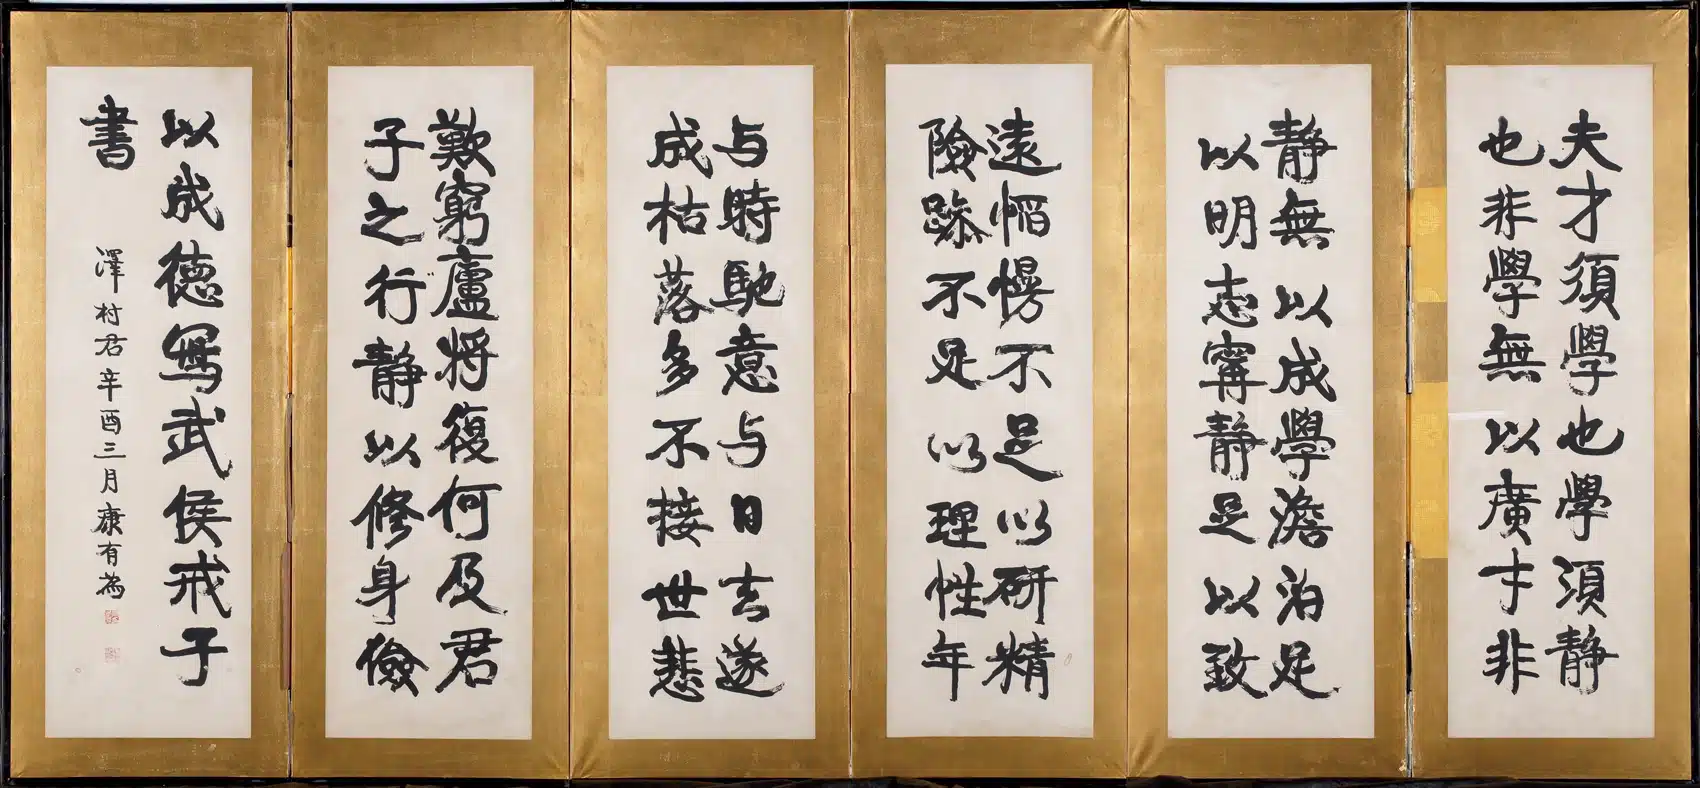 夫才須學也學須静
也非學無以廣才非
静無以成學澹泊足
以明志寗静足以致
遠慆慢不足以研精
險躁不足以理性年
与時馳意与日去遂
成枯落多不接世悲
歎窮廬将復何及君
子之行静以修身儉
以成德寫武侯戒子
書
澤村君辛酉三月康有為